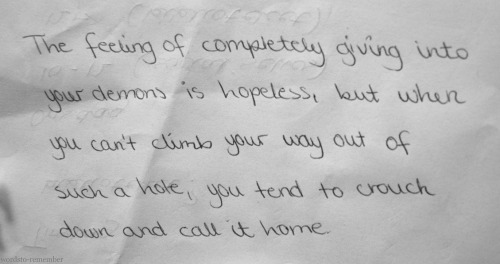 The feeling of completely giving into
your demons is hopeless, but when
you can't climb your way out of
such a hole, you tend to crouch
down and call it home.
words-to-remember